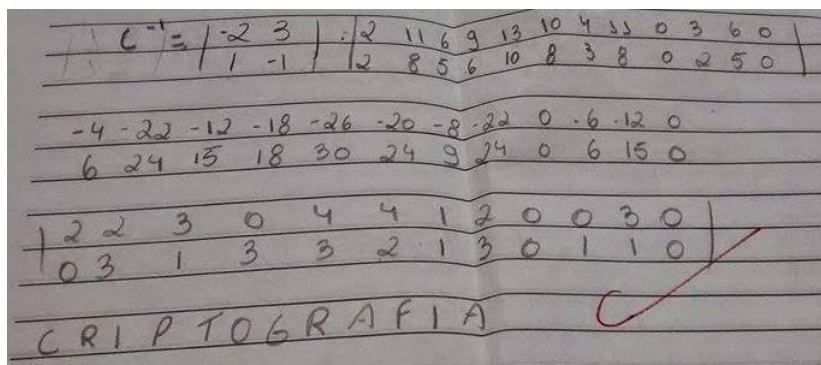 C⁻¹ = | -2 3 | . | 2 11 6 9 13 10 4 11 0 3 6 0 |
| 1 -1 | | 2 8 5 6 10 8 3 8 0 2 5 0 |
-4 -22 -12 -18 -26 -20 -8 -22 0 -6 -12 0
6 24 15 18 30 24 9 24 0 6 15 0
| 2 2 3 0 4 4 1 2 0 0 3 0 |
| 0 3 1 3 3 2 1 3 0 1 1 0 |
C R I P T O G R A F I A